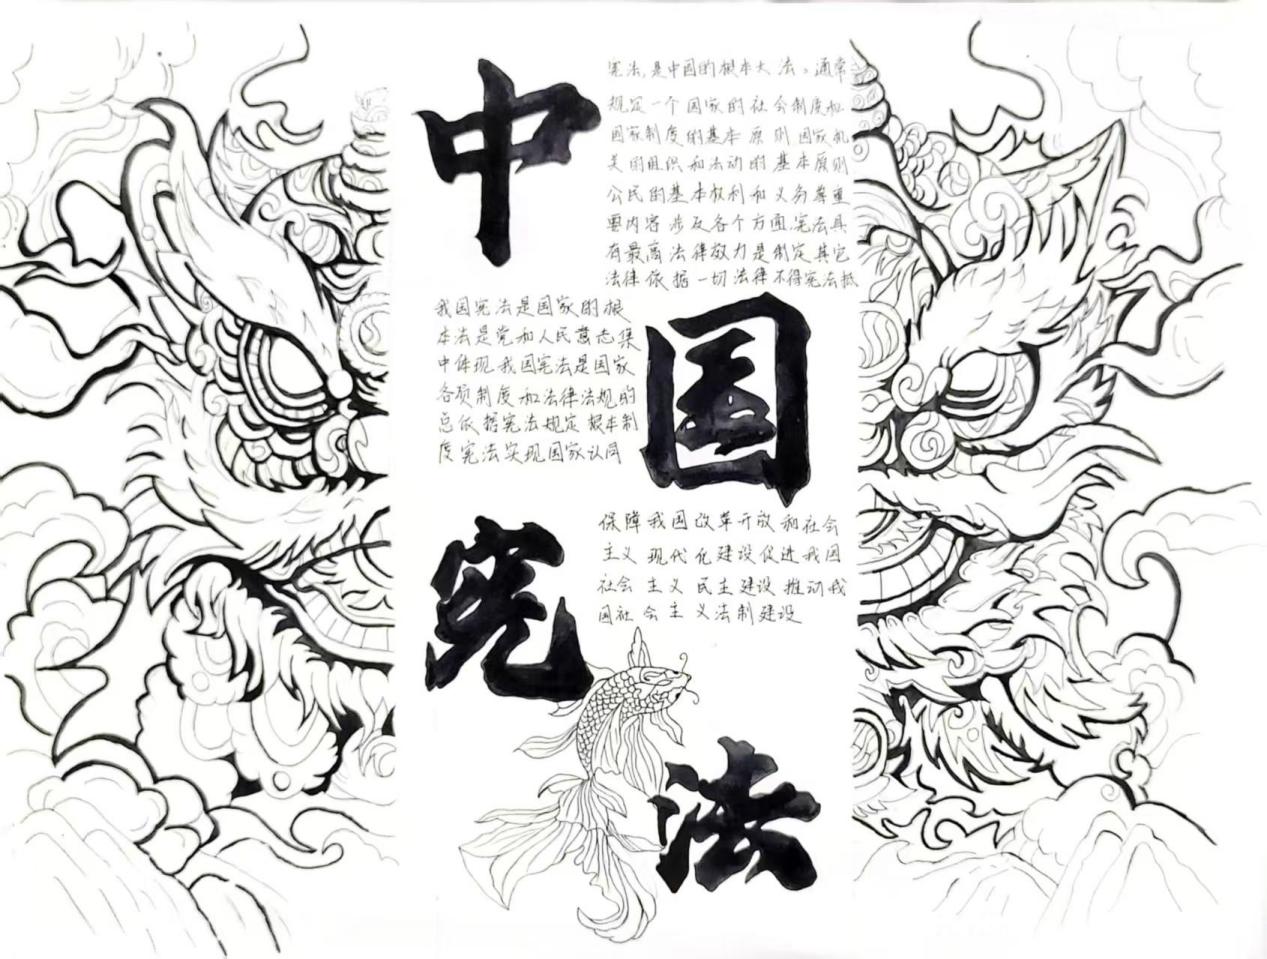 中
宪法,是中国的根本大法。通常
规定一个国家的社会制度和
国家制度的基本原则国家机
关的组织和活动的基本原则
公民的基本权利和义务等重
要内容涉及各个方面宪法具
有最高法律效力是制定其它
法律依据一切法律不得宪法抵
我国宪法是国家的根
本法是党和人民意志集
中体现我国宪法是国家
各项制度和法律法规的
总依据宪法规定根本制
度宪法实现国家认同
国
保障我国改革开放和社会
主义现代化建设促进我国
社会主义民主建设推动我
国社会主义法制建设
宪
法